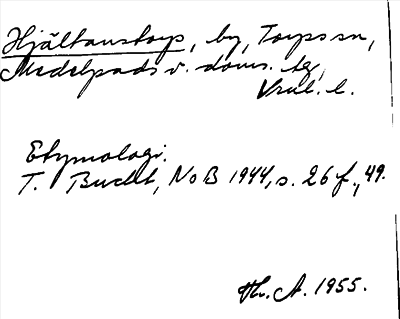 Hjältanstorp, by, Torps sn,
Medelpads v. doms. tg,
Vnl. l.
Etymologi.
T. Bucht, NoB 1944, s. 26 f., 49.
Th. A. 1955.